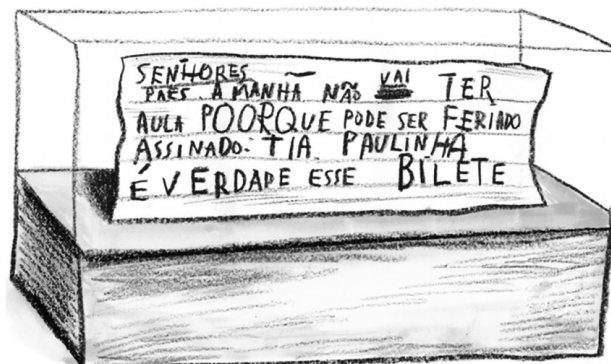 SENHORES
PAES. A MANHÃ NÃO VAI TER
AULA POORQUE PODE SER FERIADO
ASSINADO. TIA PAULINHA
É VERDADE ESSE BILETE